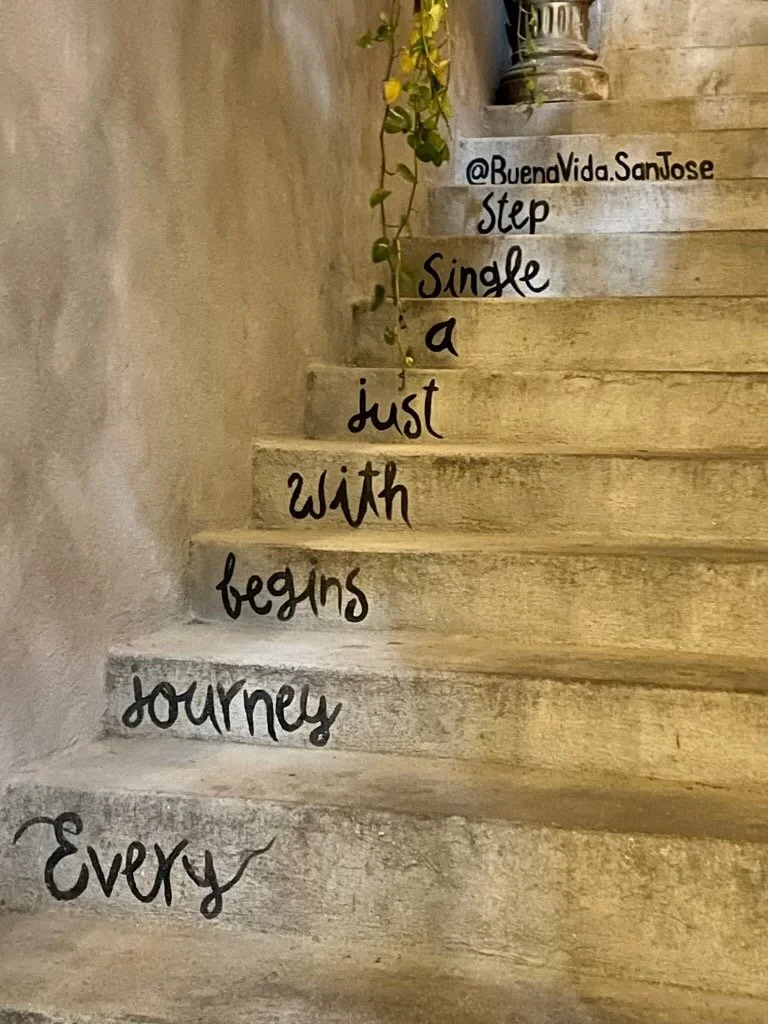 Every
journey
begins
with
just
a
Single
Step
@BuenaVida.SanJose